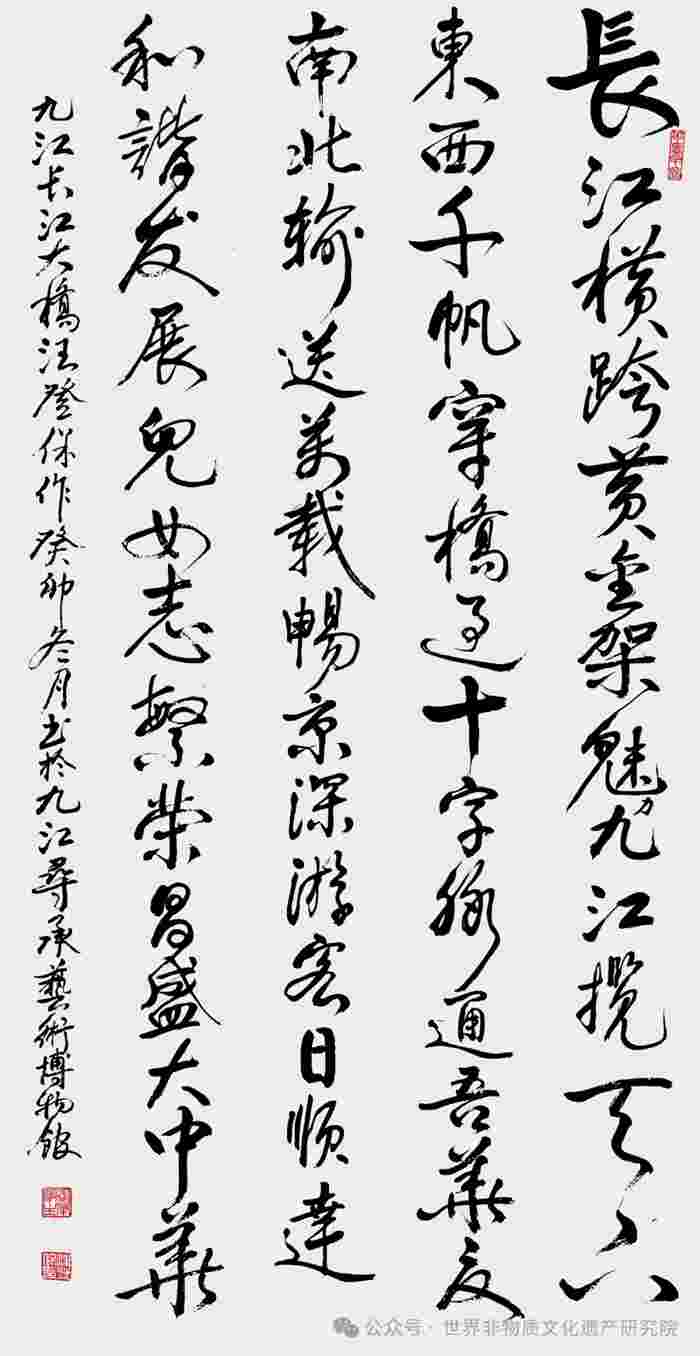 長江横跨黄金架魅力九江攬天下
東西千帆穿橋過十字脉通吾華夏
南北输送萬載暢京深游客日顺達
和諧发展兒女志繁榮昌盛大中華
九江长江大橋汪登保作癸卯冬月书於九江尋承藝術博物館
公众号·世界非物质文化遗产研究院